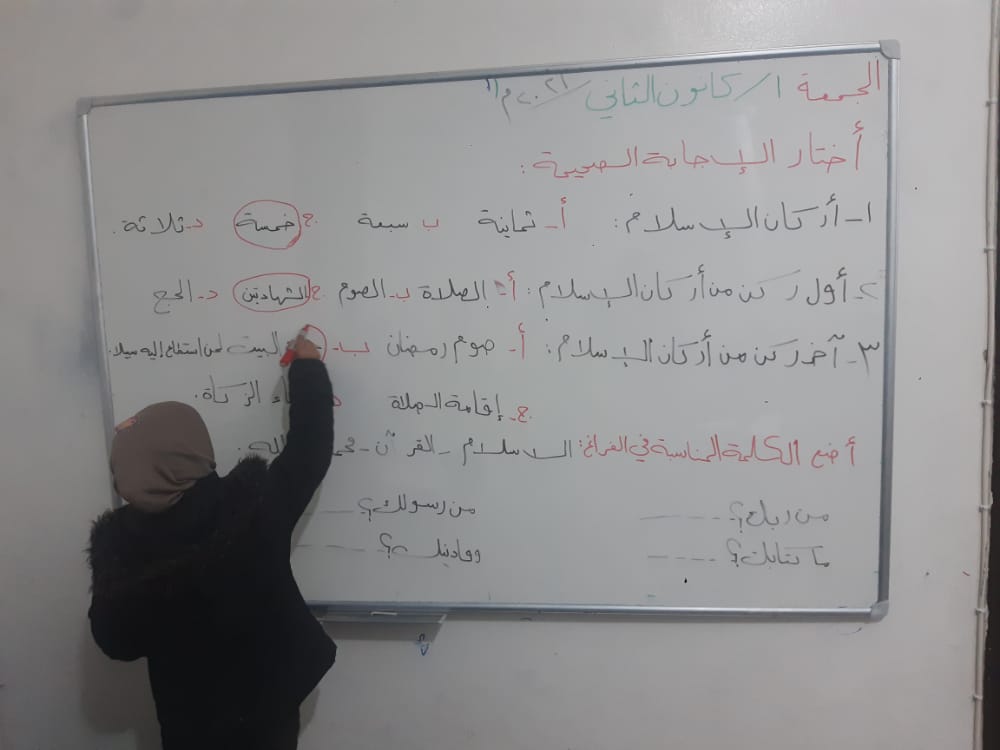 الجمعة ١/كانون الثاني/٢٠٢١م
أختار الإجابة الصحيحة:
١- أركان الإسلام: أ- ثمانية ب سبعة ج خمسة د- ثلاثة.
٢- أول ركن من أركان الإسلام: أ- الصلاة ب- الصوم ج الشهادتين د- الحج
٣- آخر ركن من أركان الإسلام: أ- صوم رمضان ب- البيت لمن استطاع إليه سبيلا.
ج- إقامة الصلاة الزكاة.
أضع الكلمة المناسبة في الفراغ: الاسلام - القرآن - الله.
من ربك؟ ---- من رسولك؟ —
ما كتابك؟ ---- وما دينك؟ ----